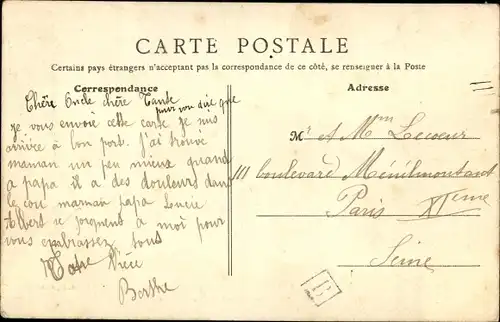 CARTE POSTALE
Certains pays étrangers n'acceptant pas la correspondance de ce côté, se renseigner à la Poste
Correspondance
Chère Oncle chère Tante
pour vou dire que
je vous envoie cette carte je suis
arrivée à bon port. J'ai trouvé
maman un peu mieux quand
a papa il a des douleurs dans
le cou maman papa Louise
Albert se joignent à moi pour
vous embrassez tous
Votre Nièce
Berthe
Adresse
Mr et Mme Lecoeur
111 boulevard Ménilmontant
Paris XIeme
Seine
E